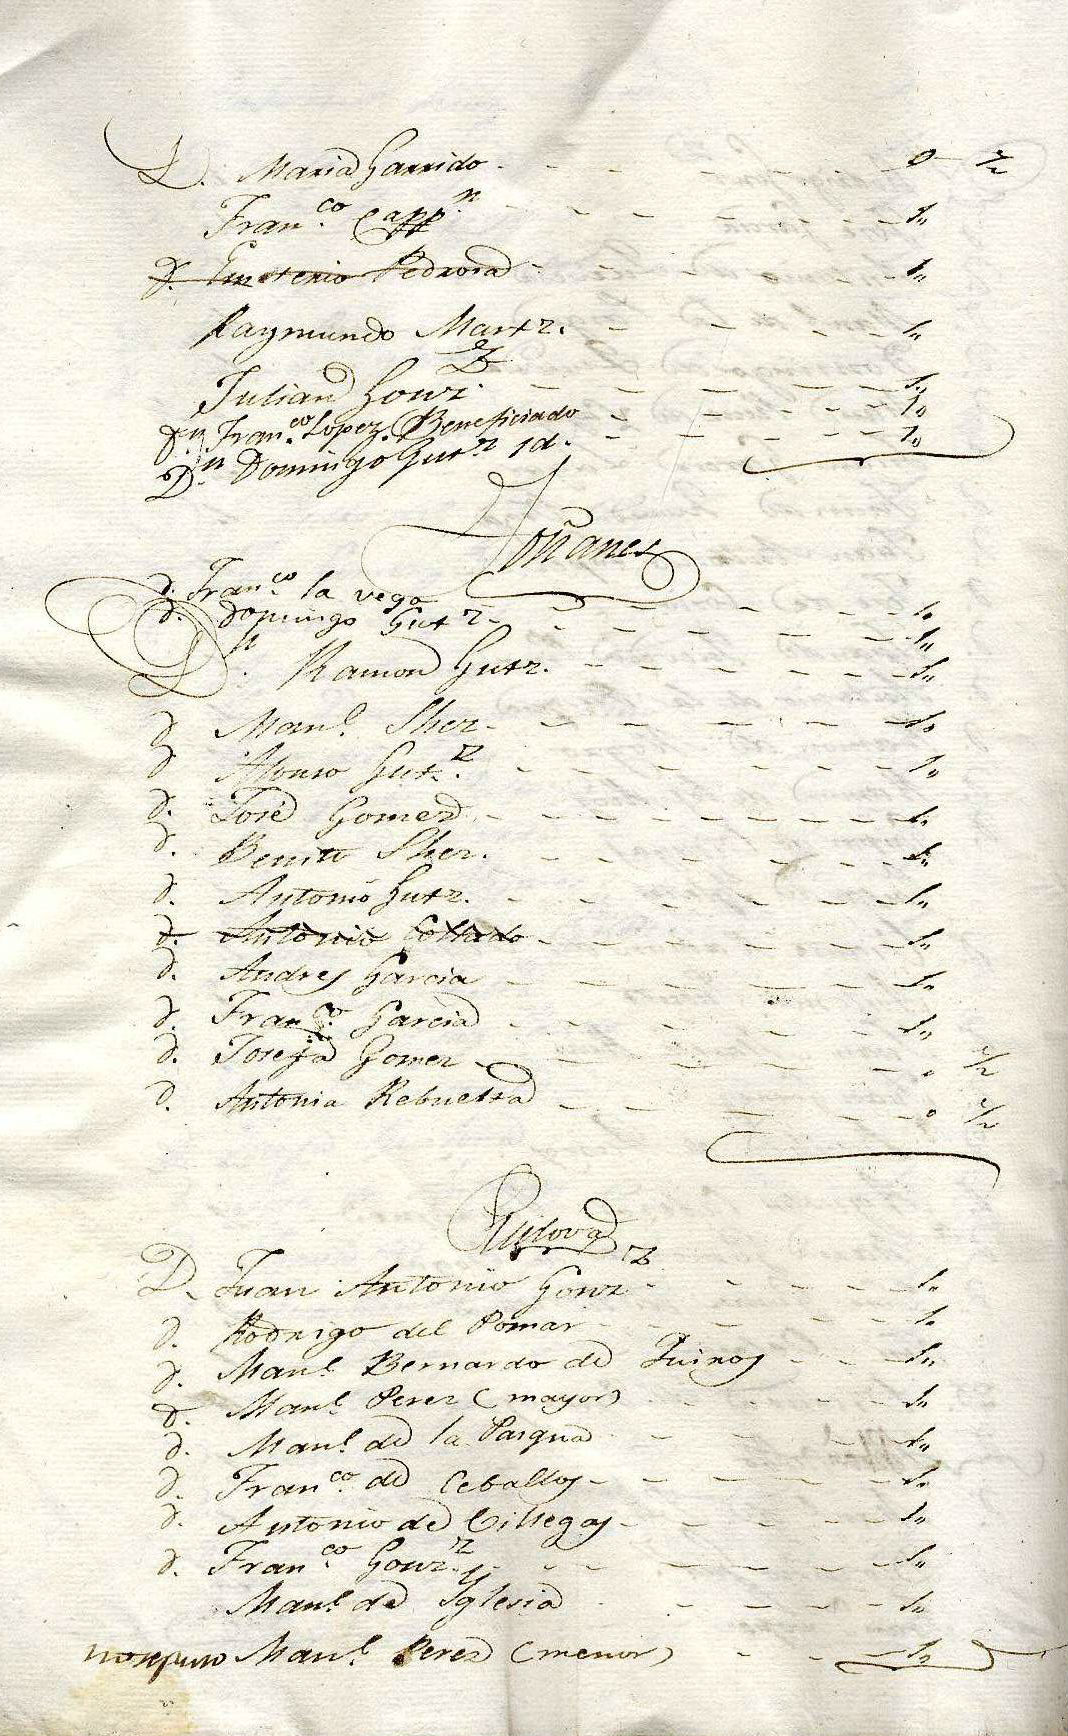 D. Maria Garrido - - - - - - 0 - ½
Fran.co Capp.n - - - - - - 1„
d. Emeterio Pedrosa - - - - - 1„
Raymundo Martz. - - - - 1„
Julian Gonz.z - - - - - 1„
Dn Fran.co Lopez. Beneficiado - - - - - 1„
D.n Domingo Gut.z 1d. - - - - - 1„
Toñanes
d. Fran.co la vega - - - - - 1„
d. Domingo Gutz - - - - - 1„
D.n Ramon Gutz. - - - - - 1„
d Man.l Shez - - - - - 1„
d Alonso Gut.z - - - - - 1„
d. José Gomez - - - - - 1„
d. Benito Shez. - - - - - 1„
d. Antonio Gutz. - - - - - 1„
d. Antonio Collado - - - - - 1„
d. Andres Garcia - - - - - 1„
d. Fran.co Garcia - - - - - 1„
d. Josefa Gomez - - - - - 0 ½
d. Antonia Rebuelta - - - - - 0 ½
D. Juan Antonio Gonz.z - - - - 1„
d. Rodrigo del Pomar - - - - 1„
d. Man.l Bernardo de Quiros - - - 1„
d. Man.l Perez (mayor) - - - - 1„
d. Man.l de la Pasqua - - - - 1„
d. Fran.co de Ceballos - - - - 1„
d. Antonio de Villegas - - - - 1„
d. Fran.co Gonz.z - - - - 1„
Man.l de Yglesia - - - - 1„
Man.l Perez (menor) - - - 1„